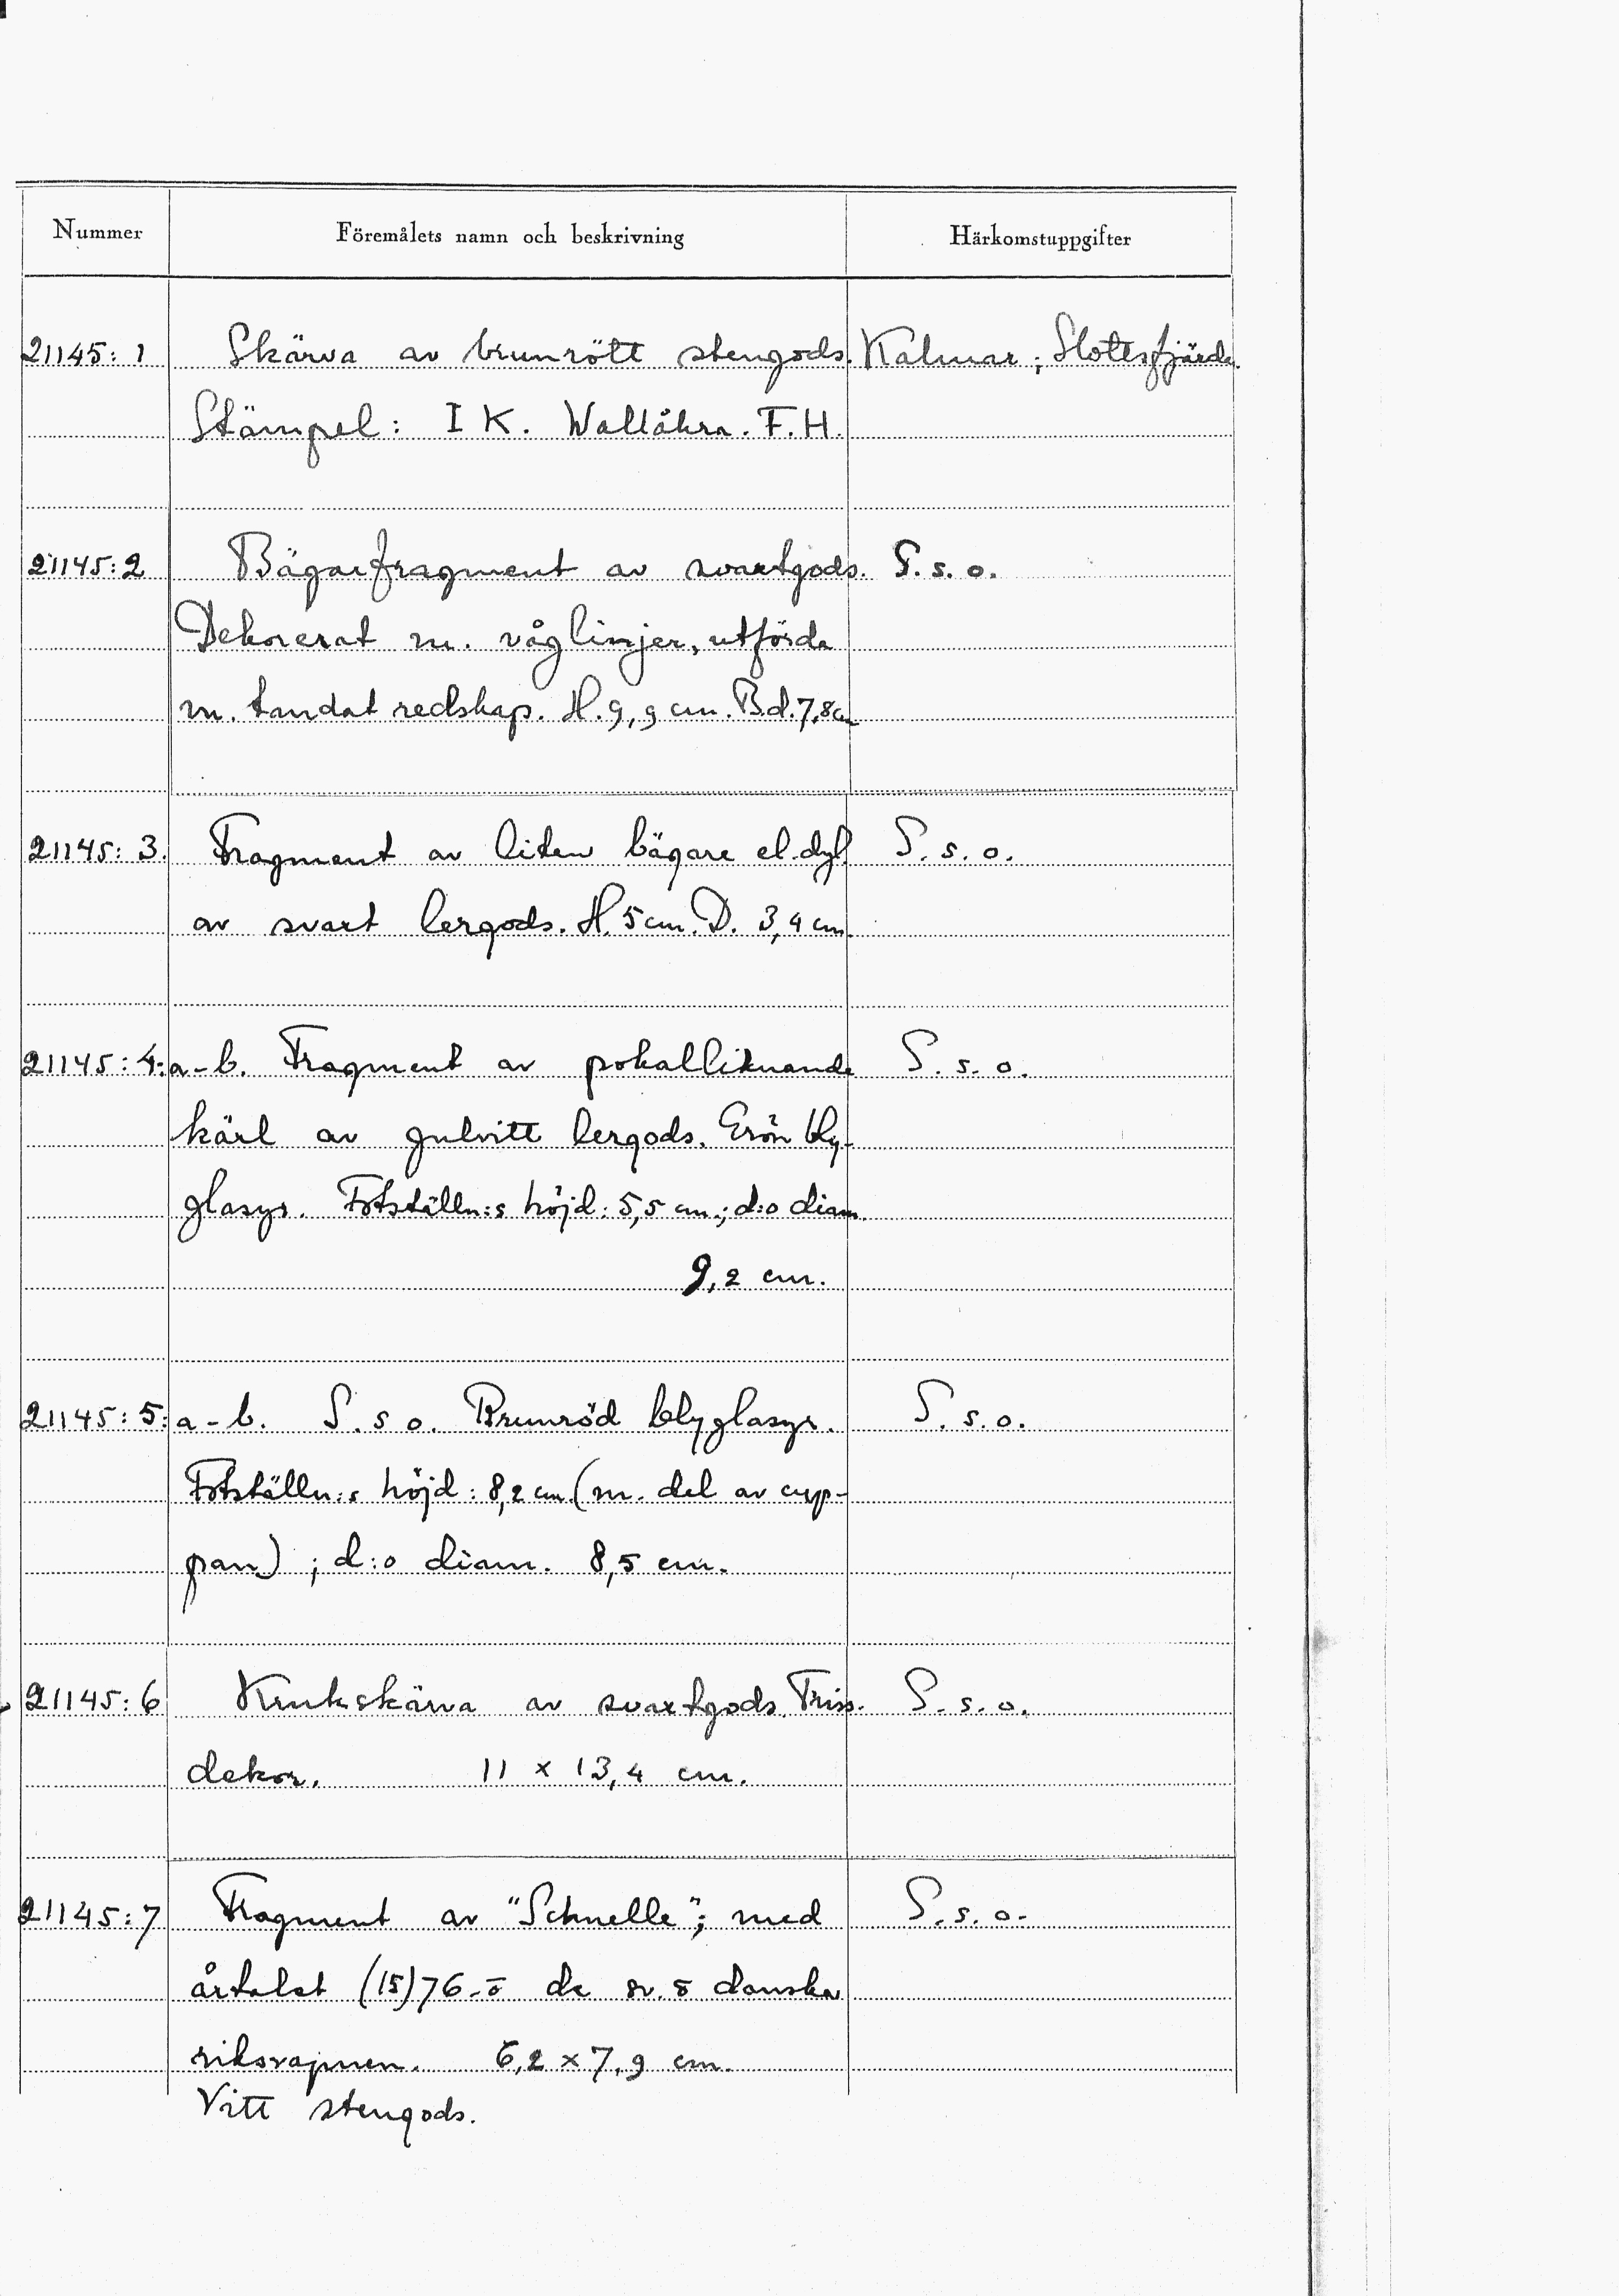 Nummer Föremålets namn och beskrivning Härkomstuppgifter
21145: 1 Skärva av brunrött stengods. Kalmar; Slottsfjärden.
Stämpel: I K. Wallåkra. F.H.
21145:2 Bägarfragment av svartgods. S.s.o.
Dekorerat m. våglinjer, utförda
m. tandat redskap. H. 9,9 cm. B.d. 7,8 cm
21145: 3. Fragment av liten bägare el. dyl. S.s.o.
av svart lergods. H. 5 cm. D. 3,4 cm.
21145: 4: a-b. Fragment av pokalliknande S.s.o.
kärl av gulvitt lergods. Grön bly-
glasyr. Fotställn:s höjd: 5,5 cm.; d:o diam.
9,2 cm.
21145: 5: a-b. S.s o. Brunröd blyglasyr. S.s.o.
Fotställn:s höjd: 8,2 cm. (m. del av cup-
pan); d:o diam. 8,5 cm.
21145: 6 Krukskärva av svartgods. Triss- S.s.o.
dekor. 11 x 13,4 cm.
21145:7 Fragment av "Schnelle"; med S.s.o.
årtalet (15)76 - o de sv. o danska
riksvapnen. 6,2 x 7,9 cm.
Vitt stengods.